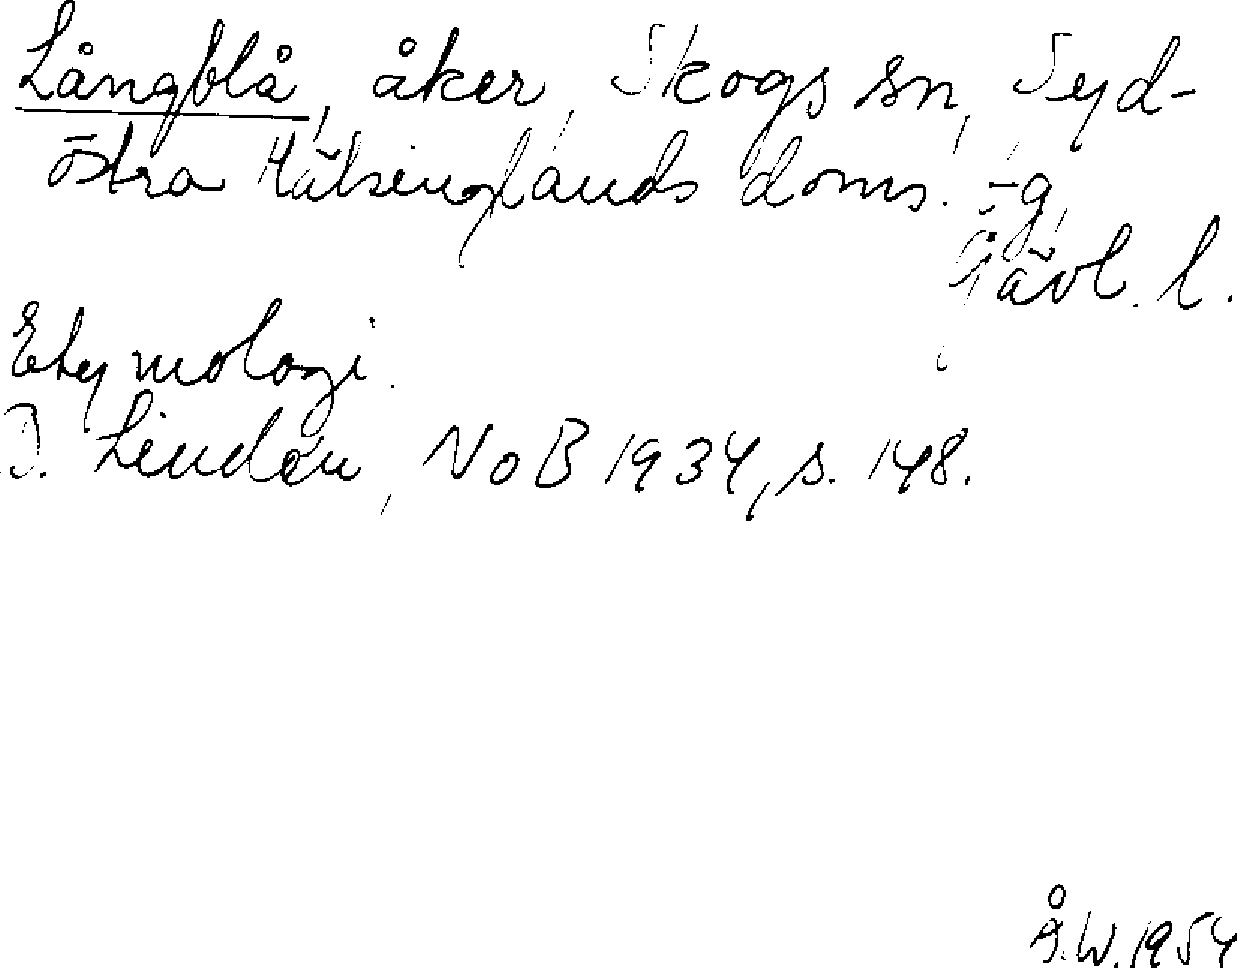 Långblå, åker, Skogs sn, Syd-
östra Hälsinglands doms.-g,
Gävl. l.
Etymologi.
D. Lindén, NoB 1934, s. 148.
Å.W. 1954